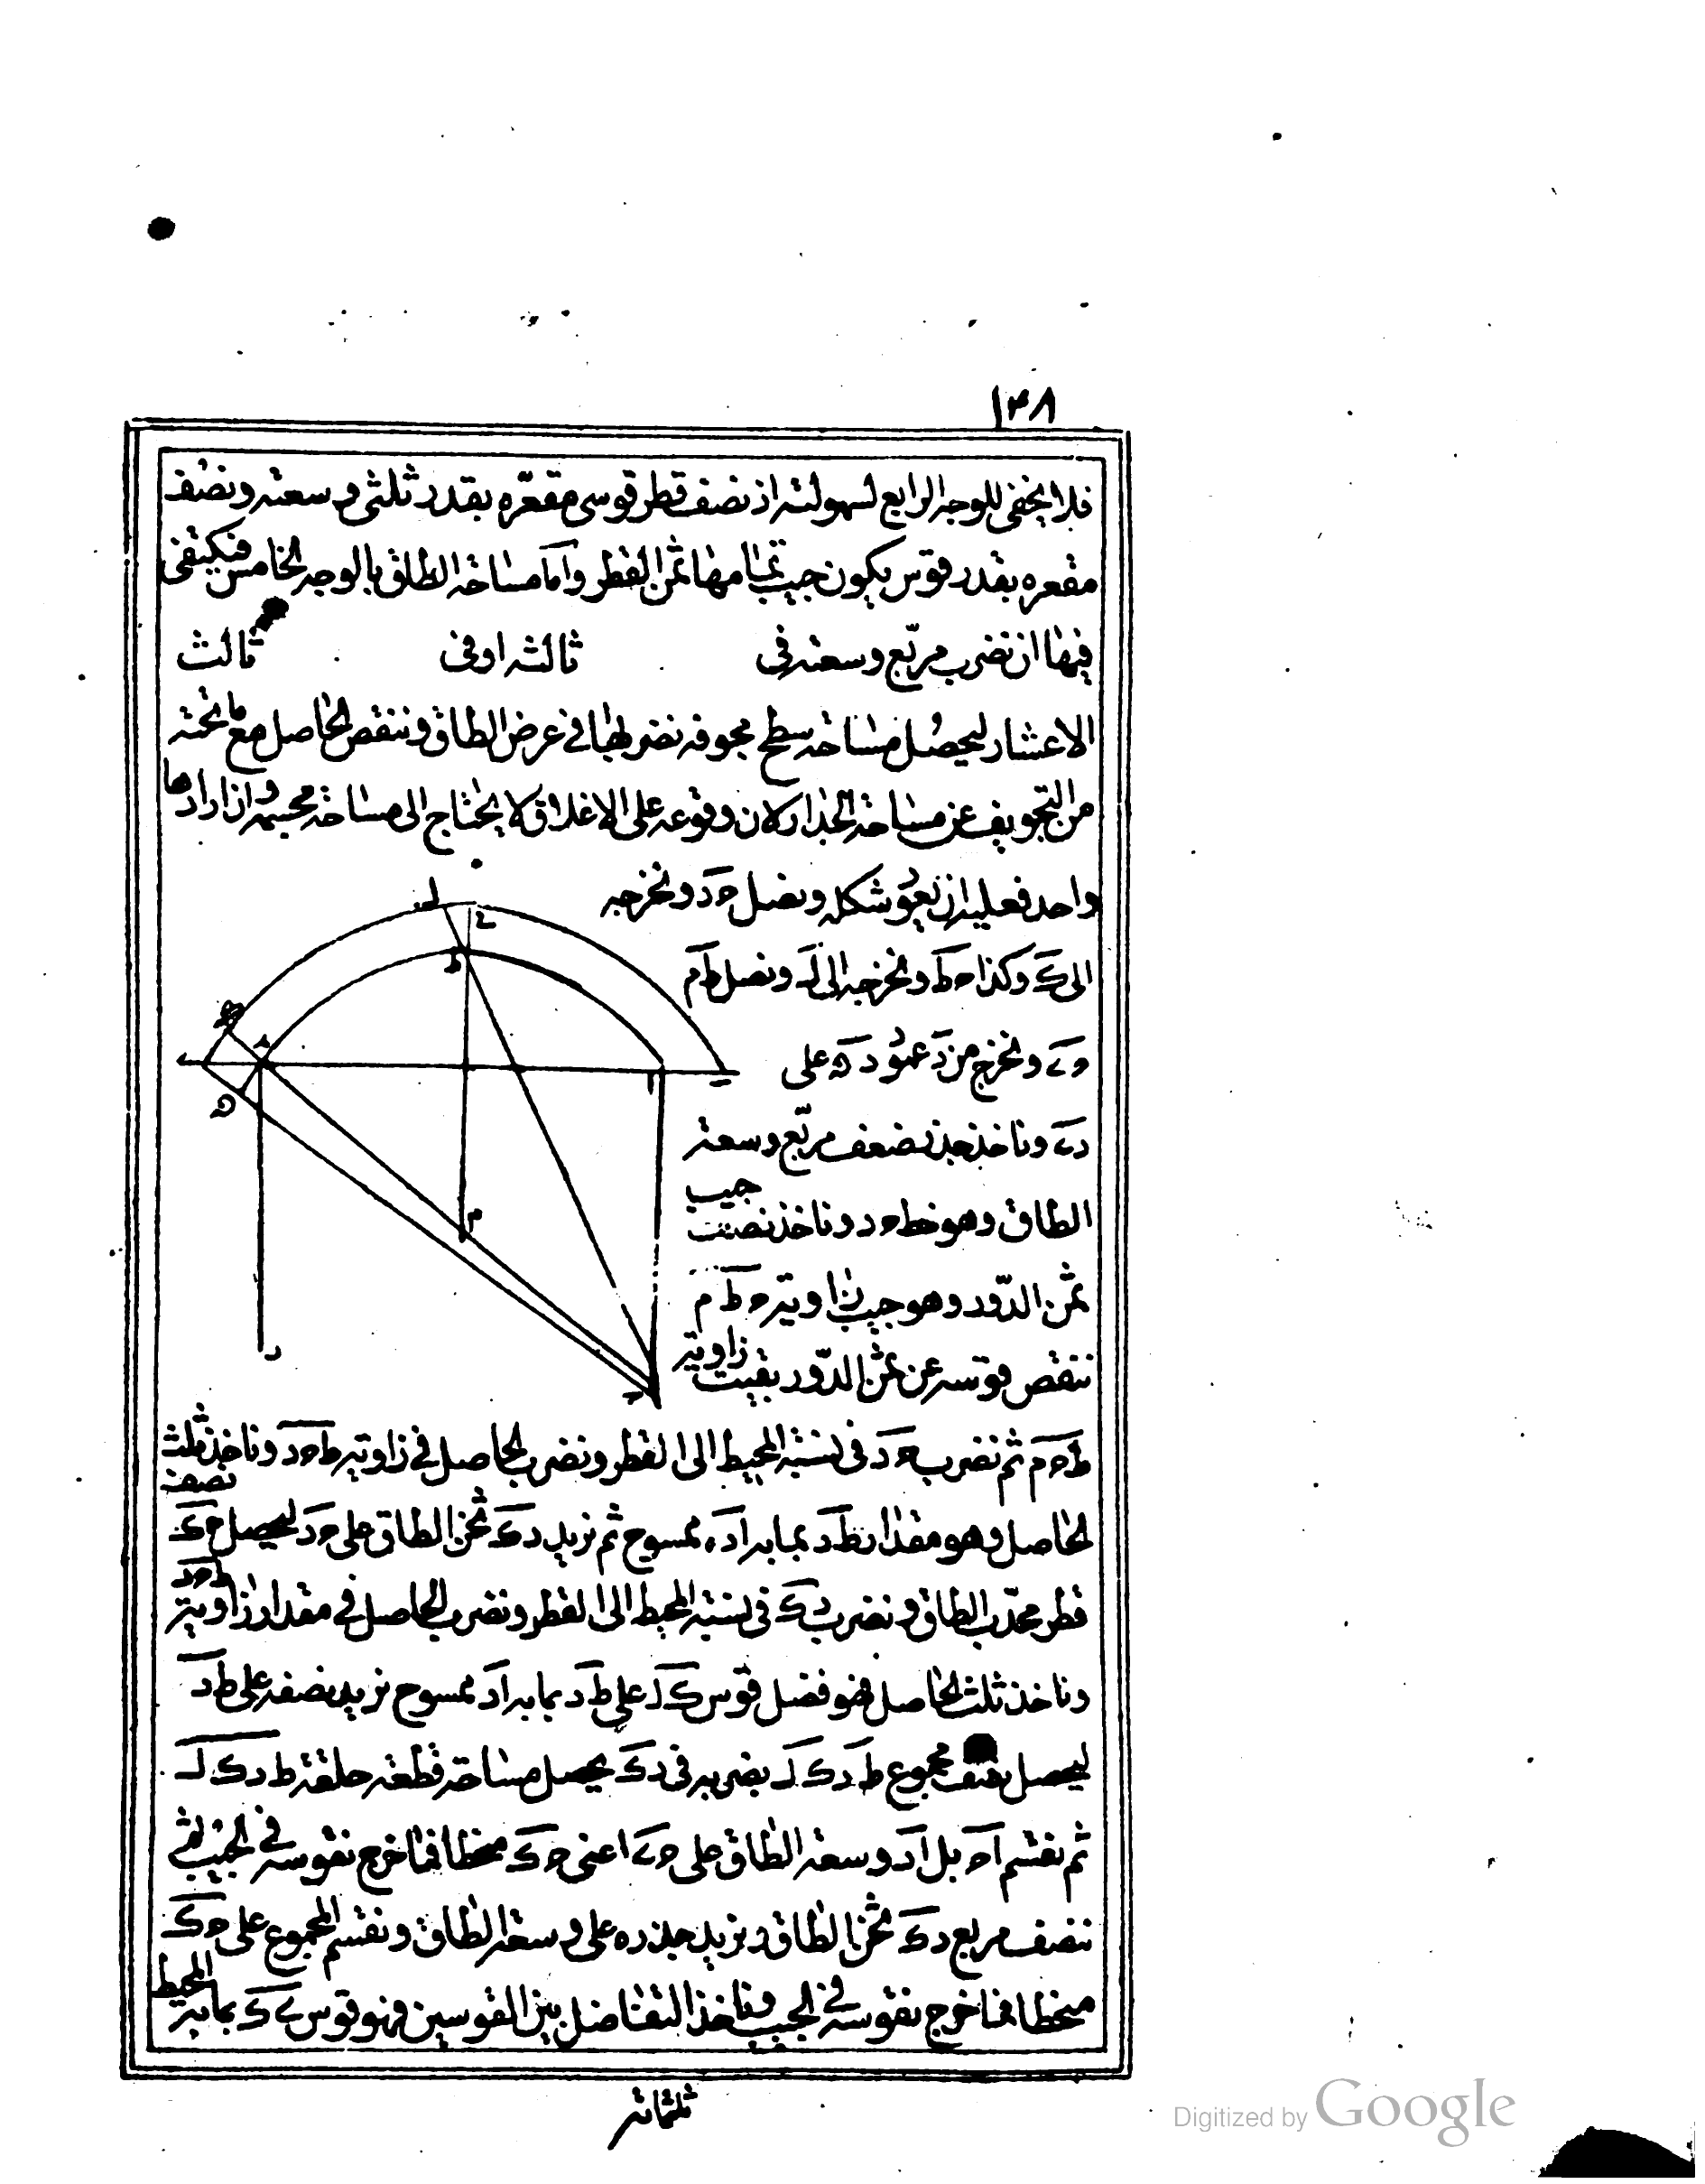 ١٣٨
فلا يخفى للوجه الرابع لسهولته اذ نصف قطر قوسى مقعّره بقدر ثلثى وسعته ونصف
مقعره بقدر قوس يكون جيب تمامها ثمن القطر وأما مساحة الطاق بالوجه الخامس فنكتفى
فيها ان نضرب مربّع وسعته فى ثالثه اوفى ثالث
الاعشار ليحصل مساحة سطح مجوفه نضربها فى عرض الطاق وننقص الحاصل مع ما تحته
من التجويف عن مساحة الجدار لان وقوعه على الاغلاق لا يحتاج الى مساحة مجسمه وان ارادها
واحد فعليه ان نعيد شكله ونصل حد ونخرجه
الى ك وكذا حط ونخرجه الى ل ونصل طم
حى ونخرج من د عمود ده على
دى وناخذ جذر ضعف مربّع وسعة
الطاق وهو خط حد وناخذ نصف جيب
ثمن الدّور وهو جيب زاوية حطم
ننقص قوسه عن ثمن الدّور بقيت زاوية
طحم ثم نضرب حد فى نسبة المحيط الى القطر ونضرب الحاصل فى زاوية طحد وناخذ ثلث نصف
الحاصل وهو مقدار طد بما به اد ممسوح ثم نزيد دك ثخن الطاق على حد ليحصل حك
قطر محدّب الطاق ونضرب دك فى نسبة المحيط الى القطر ونضرب الحاصل فى مقدار زاوية طحد
وناخذ ثلث الحاصل فهو فضل قوس كل على طد بما به اد ممسوح نزيد نصفه على طد
ليحصل نصف مجموع طد كل نضربه فى دك يحصل مساحة قطعة حلقة طدكل
ثم نقسم اح بل اد وسعة الطاق على حى اعنى حك منحطا فما خرج نقوسه فى الجيب ثم
ننصف مربع دك ثخن الطاق ونزيد جذره على وسعة الطاق ونقسم المجموع على حك
منحطا فما خرج نقوسه فى الجيب وناخذ التفاضل بين القوسين فهو قوس ى ك بما به المحيط
ثلثمائة
ل
ع
ط
ه
ا
ب
م
د
ح
Digitized by Google